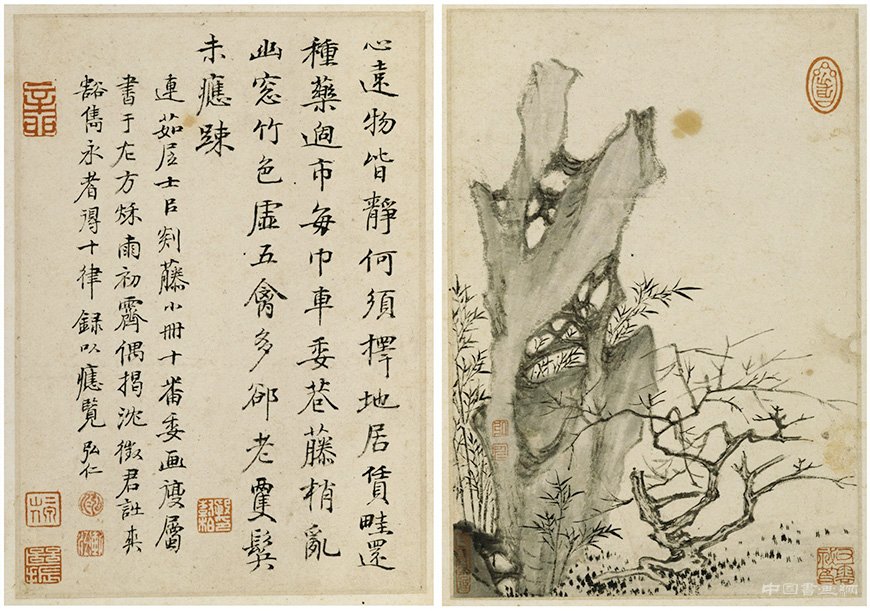 心遠物皆靜何須擇地居賃畦還
種藥過市每巾車委巷藤梢亂
幽窓竹色虛五禽多郤老雙鬓
未應踈
連茹居士以剡藤小冊十番委画復屬
書于左方秌雨初霽偶揭沈徵君詩爽
豁雋永者得十律錄以應覽弘仁
中国書画網